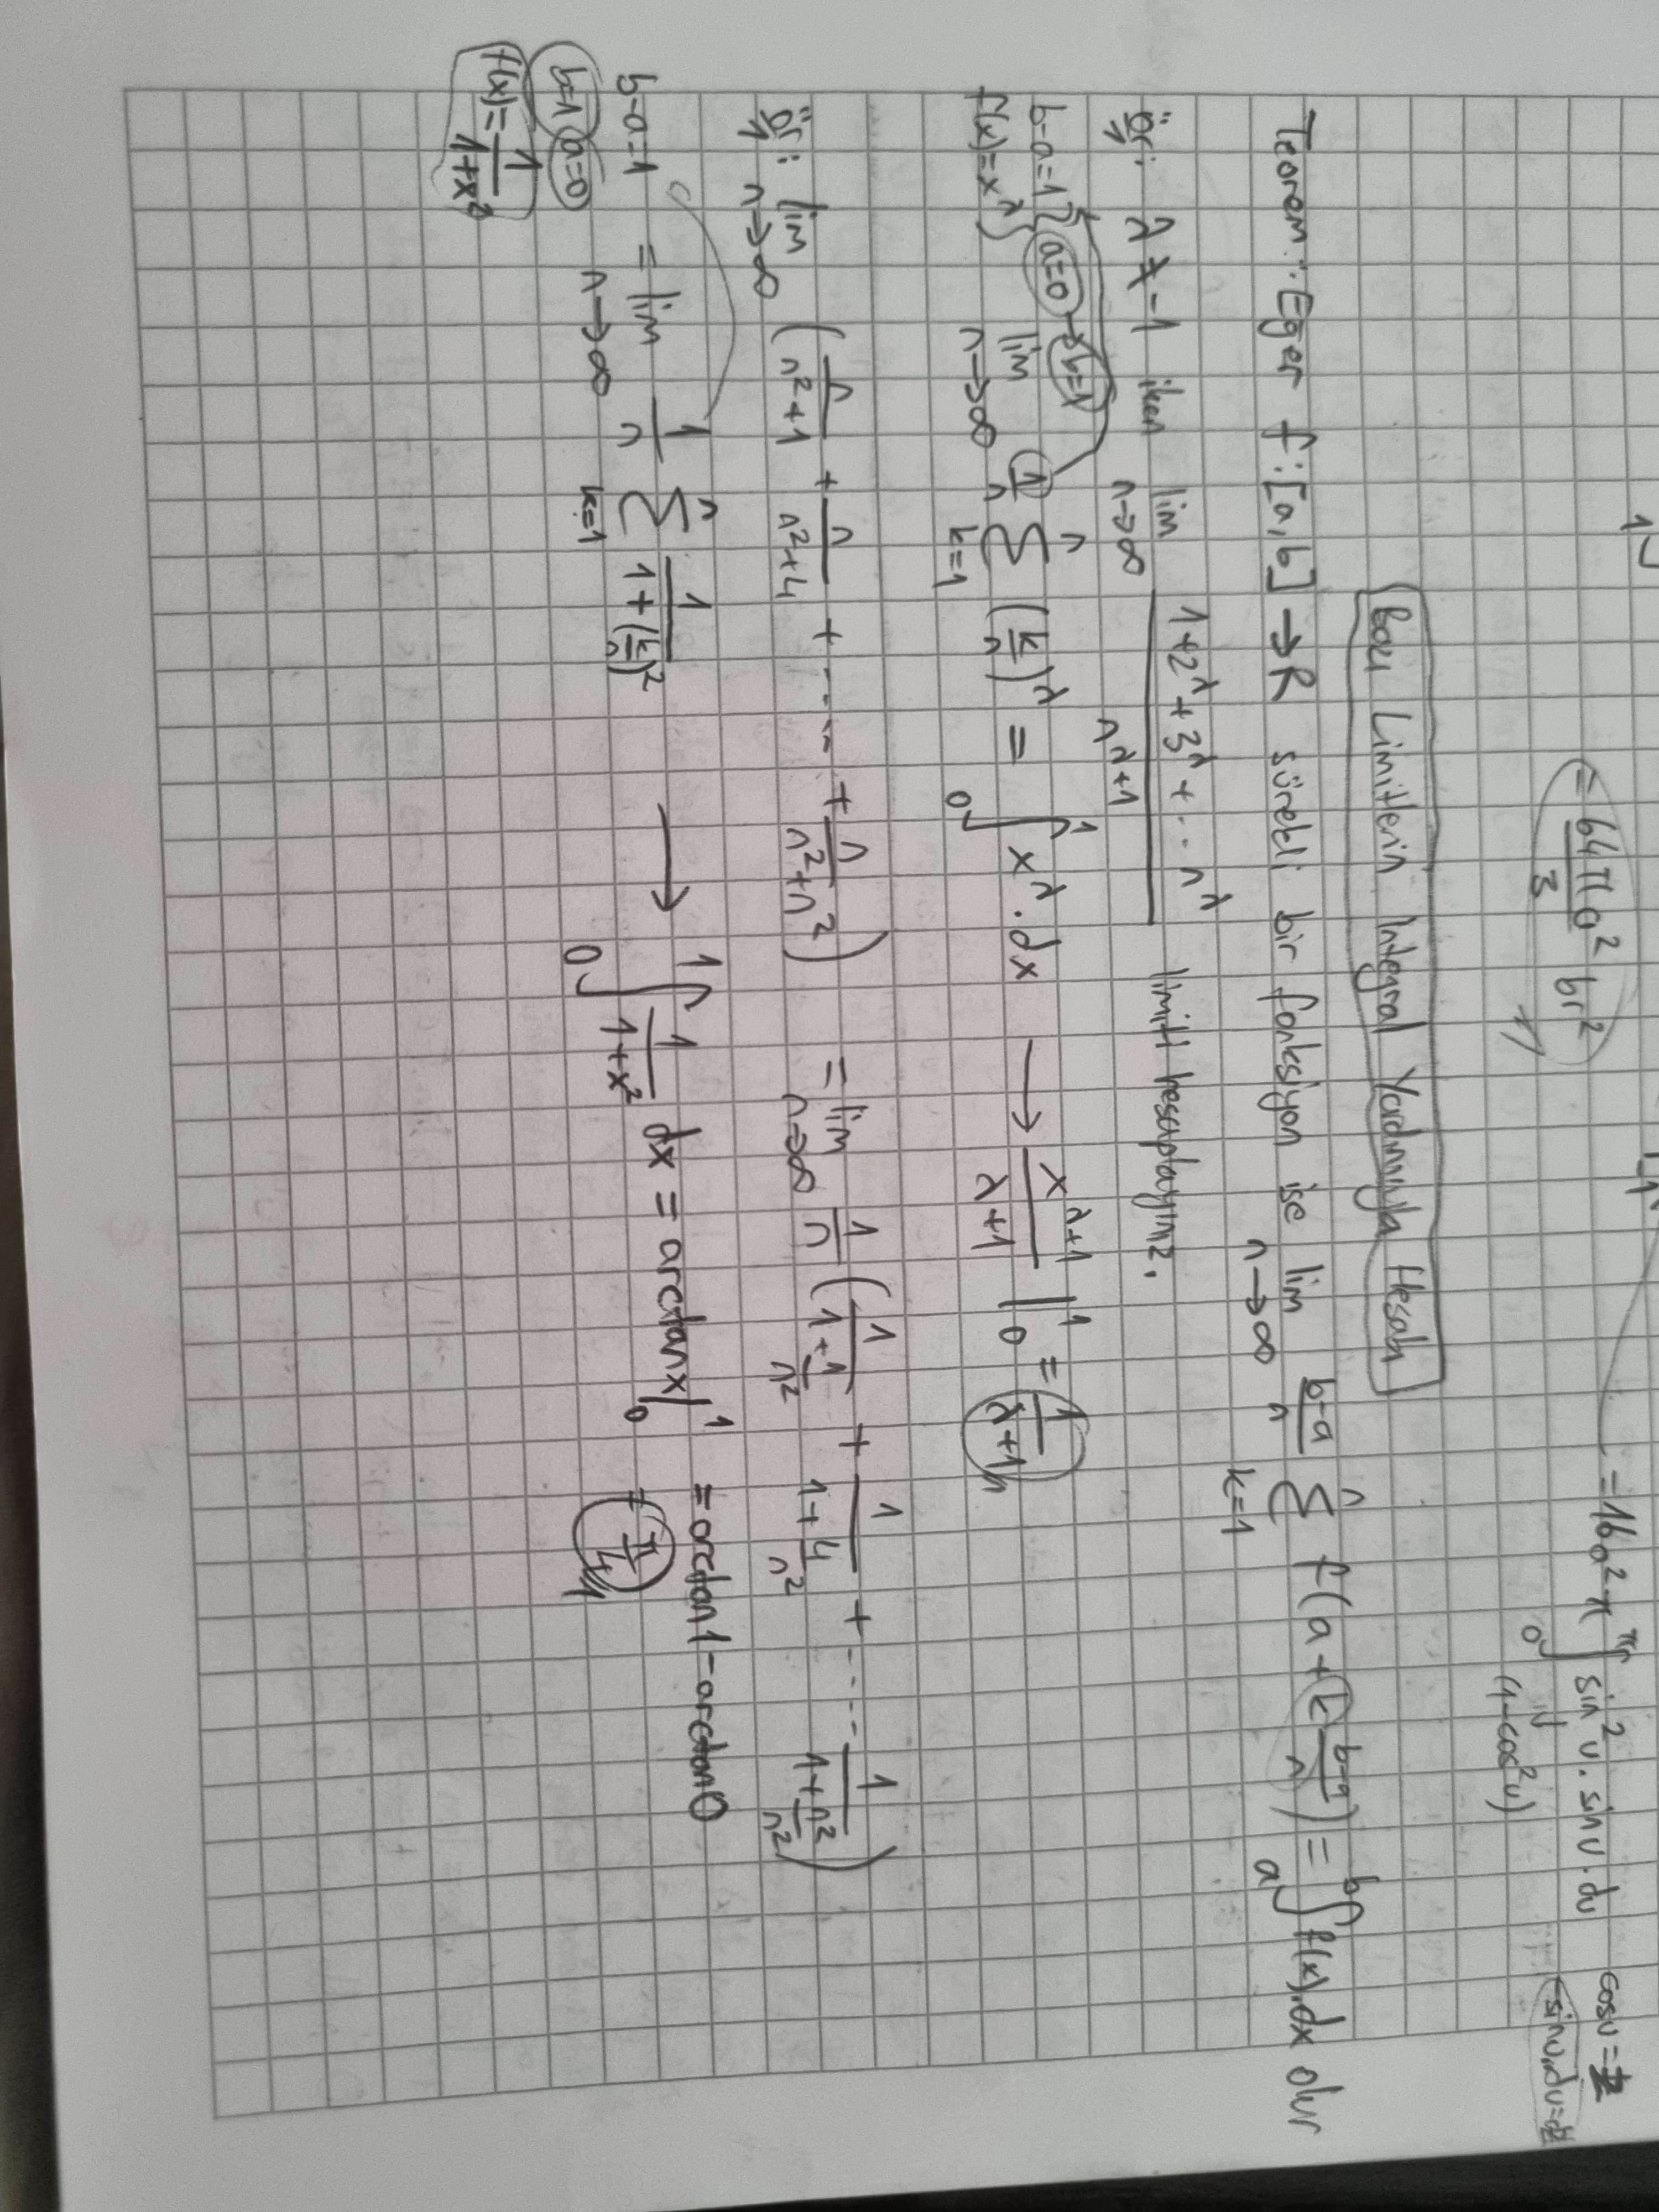 = 64πa²/3 br²
= 16a²π ∫₀^π sin²u . sinu . du
cosu = z
-sinu.du=dz
(1-cos²u)
Bazı Limitlerin Integral Yardımıyla Hesabı
Teorem: Eger f:[a,b] → R sürekli bir fonksiyon ise lim n→∞ b-a/n Σ k=1 n f(a+k b-a/n) = ∫ₐᵇ f(x).dx olur
ör: λ ≠ -1 iken lim n→∞ 1+2^λ+3^λ+...n^λ / n^(λ+1) limiti hesaplayınız.
b-a=1 a=0 → b=1
f(x)=x^λ
lim n→∞ 1/n Σ k=1 n (k/n)^λ = ∫₀¹ x^λ . dx → x^(λ+1)/λ+1 |₀¹ = 1/λ+1
ör: lim n→∞ (n/n²+1 + n/n²+4 + ..... + n/n²+n²) = lim n→∞ 1/n (1/1+1/n² + 1/1+4/n² + ..... 1/1+n²/n²)
b-a=1 = lim n→∞ 1/n Σ k=1 n 1/1+(k/n)² → ∫₀¹ 1/1+x² dx = arctanx |₀¹ = arctan1-arctan0
= π/4
b=1 a=0
f(x)=1/1+x²